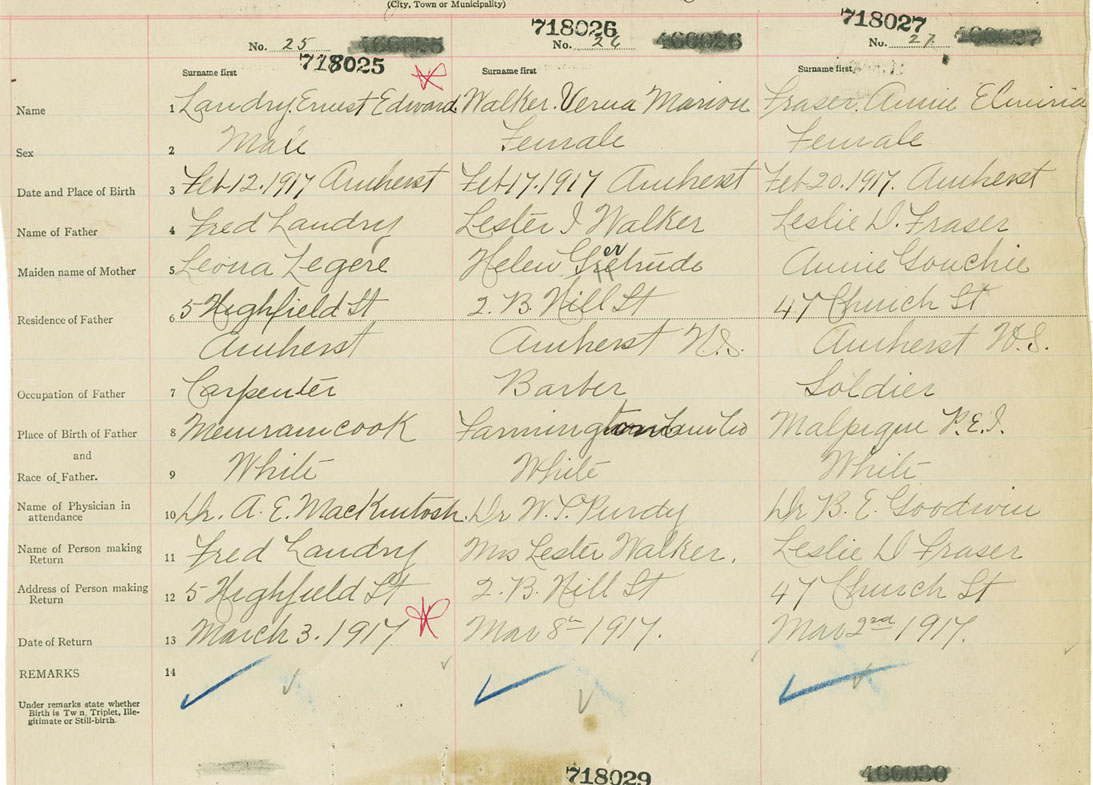 (City, Town or Municipality)
718026 718027
No. 25 No. 26 No. 27
718025
Surname first Surname first Surname first
Name 1 Landry, Ernest Edward Walker. Verna Marion Fraser. Annie
Sex 2 Male Female Female
Date and Place of Birth 3 Feb 12. 1917 Amherst Feb 17. 1917 Amherst Feb 20. 1917. Amherst
Name of Father 4 Fred Landry Lester I Walker Leslie D. Fraser
Maiden name of Mother 5 Leona Legere Helen Gertrude Annie Gouchie
Residence of Father 6 5 Highfield St 2. B. Hill St 47 Church St
Amherst Amherst N.S. Amherst N.S.
Occupation of Father 7 Carpenter Barber Soldier
Place of Birth of Father 8 Memramcook Farmington Malpeque P.E.I.
and
Race of Father. 9 White White White
Name of Physician in attendance 10 Dr. A. E. MacKintosh. Dr W. T. Purdy Dr B. E. Goodwin
Name of Person making Return 11 Fred Landry Mrs Lester Walker. Leslie D Fraser
Address of Person making Return 12 5 Highfield St 2. B. Hill St 47 Church St
Date of Return 13 March 3. 1917 Mar 8th 1917. Mar 2nd 1917.
REMARKS 14
Under remarks state whether
Birth is Tw n, Triplet, Ille-
gitimate or Still-birth.
718029